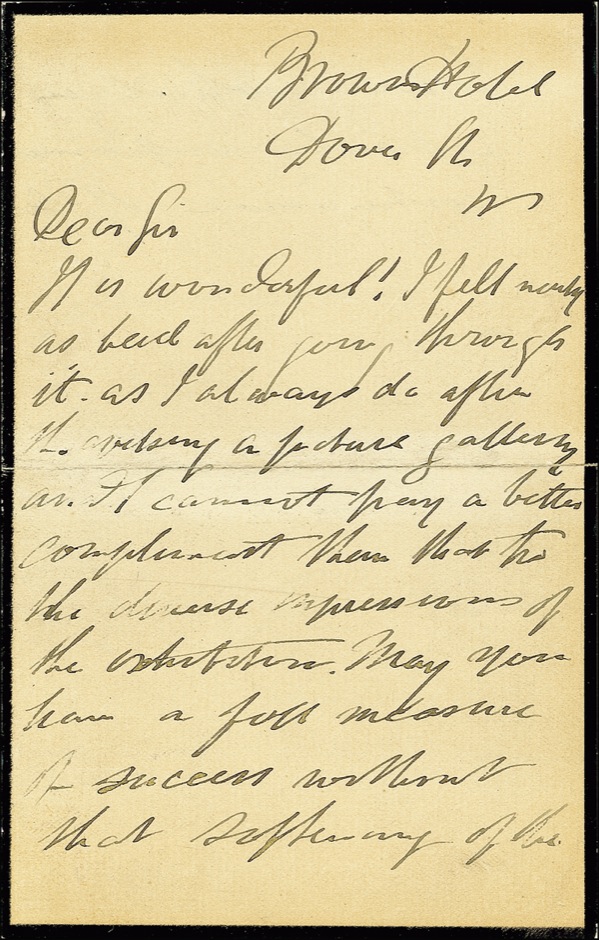 Browns Hotel
Dover St
W
Dear Sir
It is wonderful! I felt nearly
as bad after going through
it as I always do after
the a picture gallery
and I cannot pay a better
compliment than that to
the diverse impressions of
the exhibition. May you
have a full measure
of success without
that softening of the